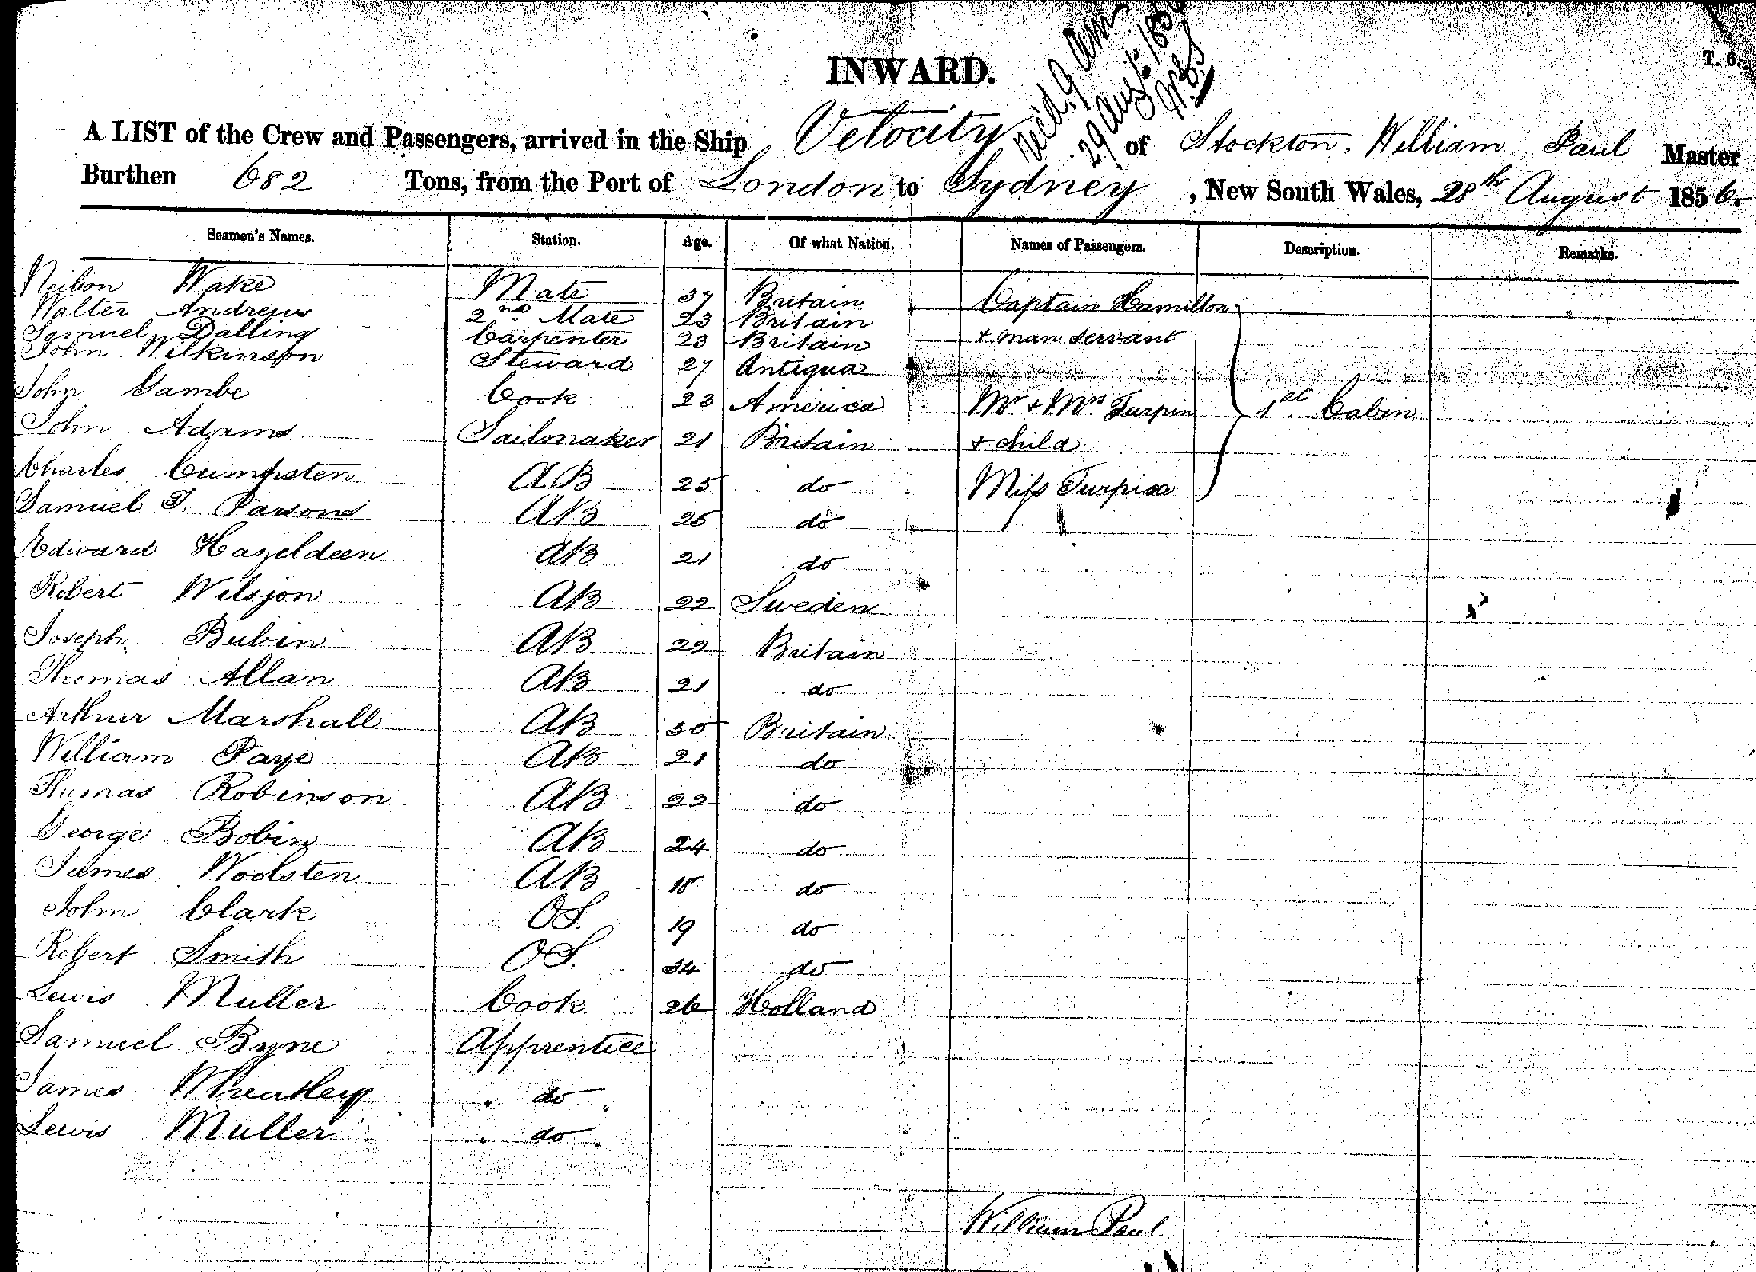 T. 6.
INWARD.
29 Augt 185
A LIST of the Crew and Passengers, arrived in the Ship Velocity of Stockton, William Paul Master
Burthen 682 Tons, from the Port of London to Sydney, New South Wales, 28th August 1856.
Seamen's Names. Station. Age. Of what Nation. Names of Passengers. Description. Remarks.
Neilson Wake Mate 37 Britain Captain Hamilton
Walter Andrews 2nd Mate 23 Britain
Samuel Dalling Carpenter 23 Britain + man servant
John Wilkinson Steward 27 Antigua
John Gambe Cook 23 America Mr + Mrs Turpin 1st Cabin
John Adams Sailmaker 21 Britain + child
Charles Cumpsten AB 25 do Miss Turpin
Samuel T. Parsons AB 25 do
Edward Hazeldeen AB 21 do
Robert Wilsjon AB 22 Sweden
Joseph Bubin AB 22 Britain
Thomas Allan AB 21 do
Arthur Marshall AB 30 Britain
William Paye AB 21 do
Thomas Robinson AB 22 do
George Bobin AB 24 do
James Woolsten AB 18 do
John Clark OS. 19 do
Robert Smith OS. 34 do
Lewis Muller Cook 26 Holland
Samuel Bryne Apprentice
James Wheatley do
Lewis Muller do
William Paul